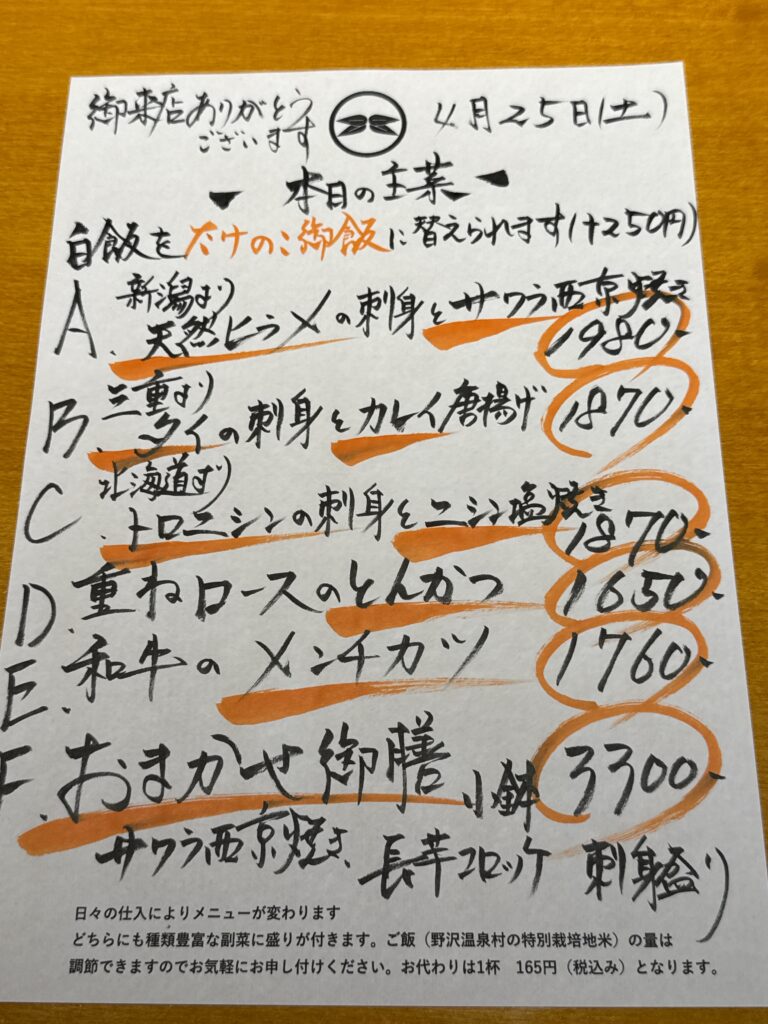 御来店ありがとう
ございます
4月25日(土)
本日の主菜
白飯をたけのこ御飯に替えられます(+250円)
A、新潟より
天然ヒラメの刺身とサワラ西京焼き 1980-
B、三重より
タイの刺身とカレイ唐揚げ 1870-
C、北海道より
トロニシンの刺身とニシン塩焼き 1870-
D、重ねロースのとんかつ 1650-
E、和牛のメンチカツ 1760-
F、おまかせ御膳 小鉢 3300-
サワラ西京焼き、長芋コロッケ 刺身盛り
日々の仕入によりメニューが変わります
どちらにも種類豊富な副菜に盛りが付きます。ご飯（野沢温泉村の特別栽培地米）の量は
調節できますのでお気軽にお申し付けください。お代わりは1杯　165円（税込み）となります。